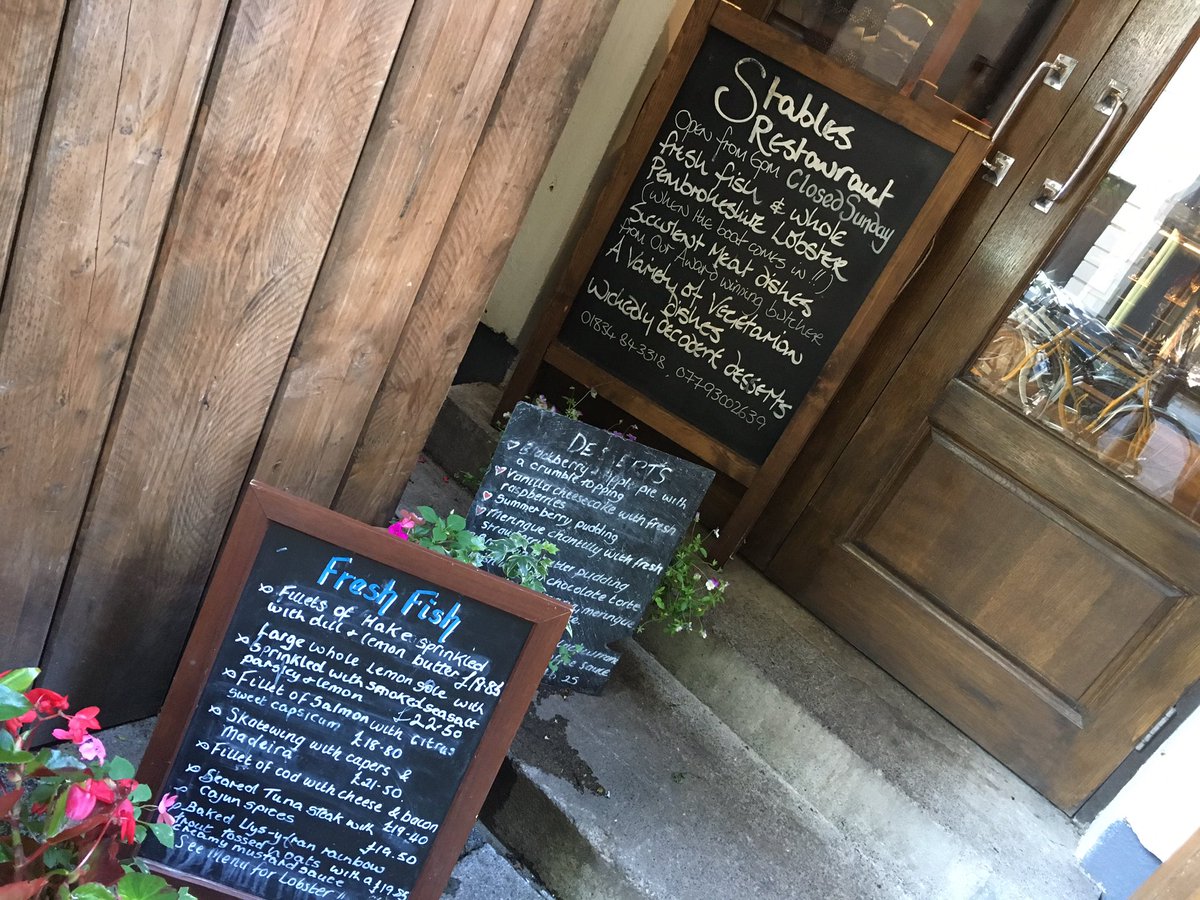 Stables
Restaurant
Open from 6pm Closed Sunday
fresh fish & whole
Pembrokeshire Lobster
(when the boat comes in !!)
Succulent Meat dishes
from Our Award winning butcher
A Variety of Vegetarian
Dishes
Wickedly Decadent desserts
01834 843318, 07793002639
DESSERTS
Blackberry & apple pie with
a crumble topping
Vanilla cheesecake with fresh
raspberries
Summerberry pudding
Meringue chantilly with fresh
pudding
chocolate torte
meringue
sauce
Fresh Fish
Fillets of Hake sprinkled
with dill & lemon butter £18.85
Large whole Lemon sole with
Sprinkled with smoked seasalt
parsley & lemon £22.50
Fillet of Salmon with citrus
sweet capsicum £18.80
Skatewing with capers &
Madeira £21.50
Fillet of cod with cheese & bacon
£19.40
Seared Tuna steak with
Cajun spices £19.50
Baked Llys-y-fran rainbow
trout tossed in oats with a
creamy mustard sauce £19.85
See Menu for Lobster !!